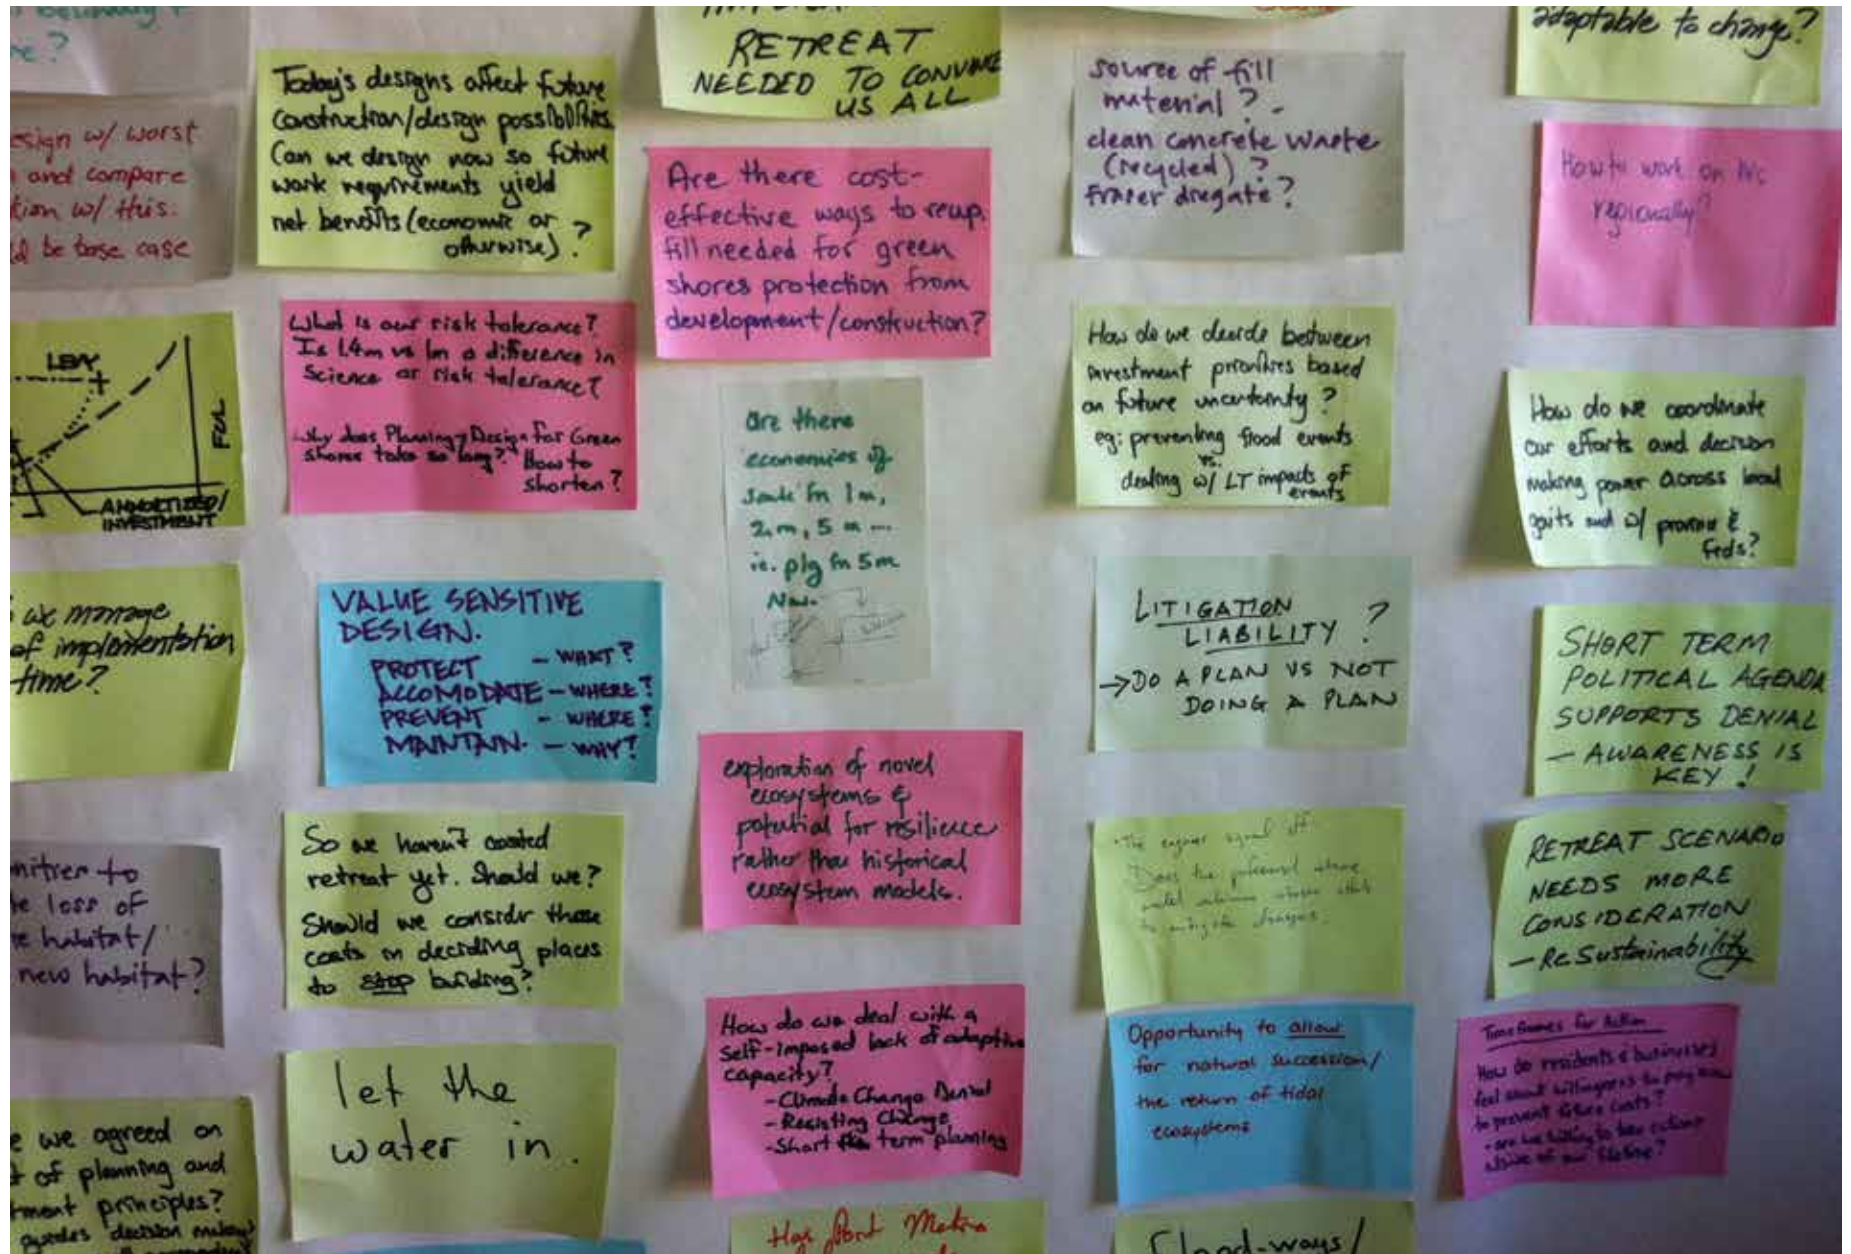 re?
sign w/ worst
and compare
tion w/ this.
d be base case
LEVY
FCL
AMMORTIZED/
INVESTMENT
we manage
of implementation
time?
loss of
habitat/
new habitat?
e we agreed on
t of planning and
tment principles?
guides decision making
Today's designs affect future
construction/design possibilities.
Can we design now so future
work requirements yield
net benefits (economic or
otherwise)?
What is our risk tolerance?
Is 1.4m vs 1m a difference in
Science or risk tolerance?
Why does Planning & Design for Green
shores take so long? How to
shorten?
VALUE SENSITIVE
DESIGN.
PROTECT - WHAT?
ACCOMODATE - WHERE?
PREVENT - WHERE?
MAINTAIN. - WHY?
So we haven't costed
retreat yet. Should we?
Should we consider those
costs in deciding places
to stop building?
let the
water in.
RETREAT
NEEDED TO CONVINCE
US ALL
Are there cost-
effective ways to recup.
fill needed for green
shores protection from
development/construction?
are there
economies of
scale for 1m,
2m, 5m ...
ie. plg for 5m
Now.
exploration of novel
ecosystems &
potential for resilience
rather than historical
ecosystem models.
How do we deal with a
self-imposed lack of adaptive
capacity?
- Climate Change Denial
- Resisting Change
- Short term planning
Has Port Metro
source of fill
material?
clean concrete waste
(recycled)?
Fraser dregate?
How do we decide between
investment priorities based
on future uncertainty?
eg: preventing flood events
vs.
dealing w/ LT impacts of
events
LITIGATION
LIABILITY?
→ DO A PLAN VS NOT
DOING A PLAN
Does the
Opportunity to allow
for natural succession/
the return of tidal
ecosystems
Flood-ways/
adaptable to change?
How to work on this
regionally?
How do we coordinate
our efforts and decision
making power across local
gov'ts and w/ province &
feds?
SHORT TERM
POLITICAL AGENDA
SUPPORTS DENIAL
- AWARENESS IS
KEY!
RETREAT SCENARIO
NEEDS MORE
CONSIDERATION
- Re Sustainability
Timeframes for Action
How do residents & businesses
feel about willingness to pay now
to prevent future costs?
- are we willing to take actions
outside of our lifetime?